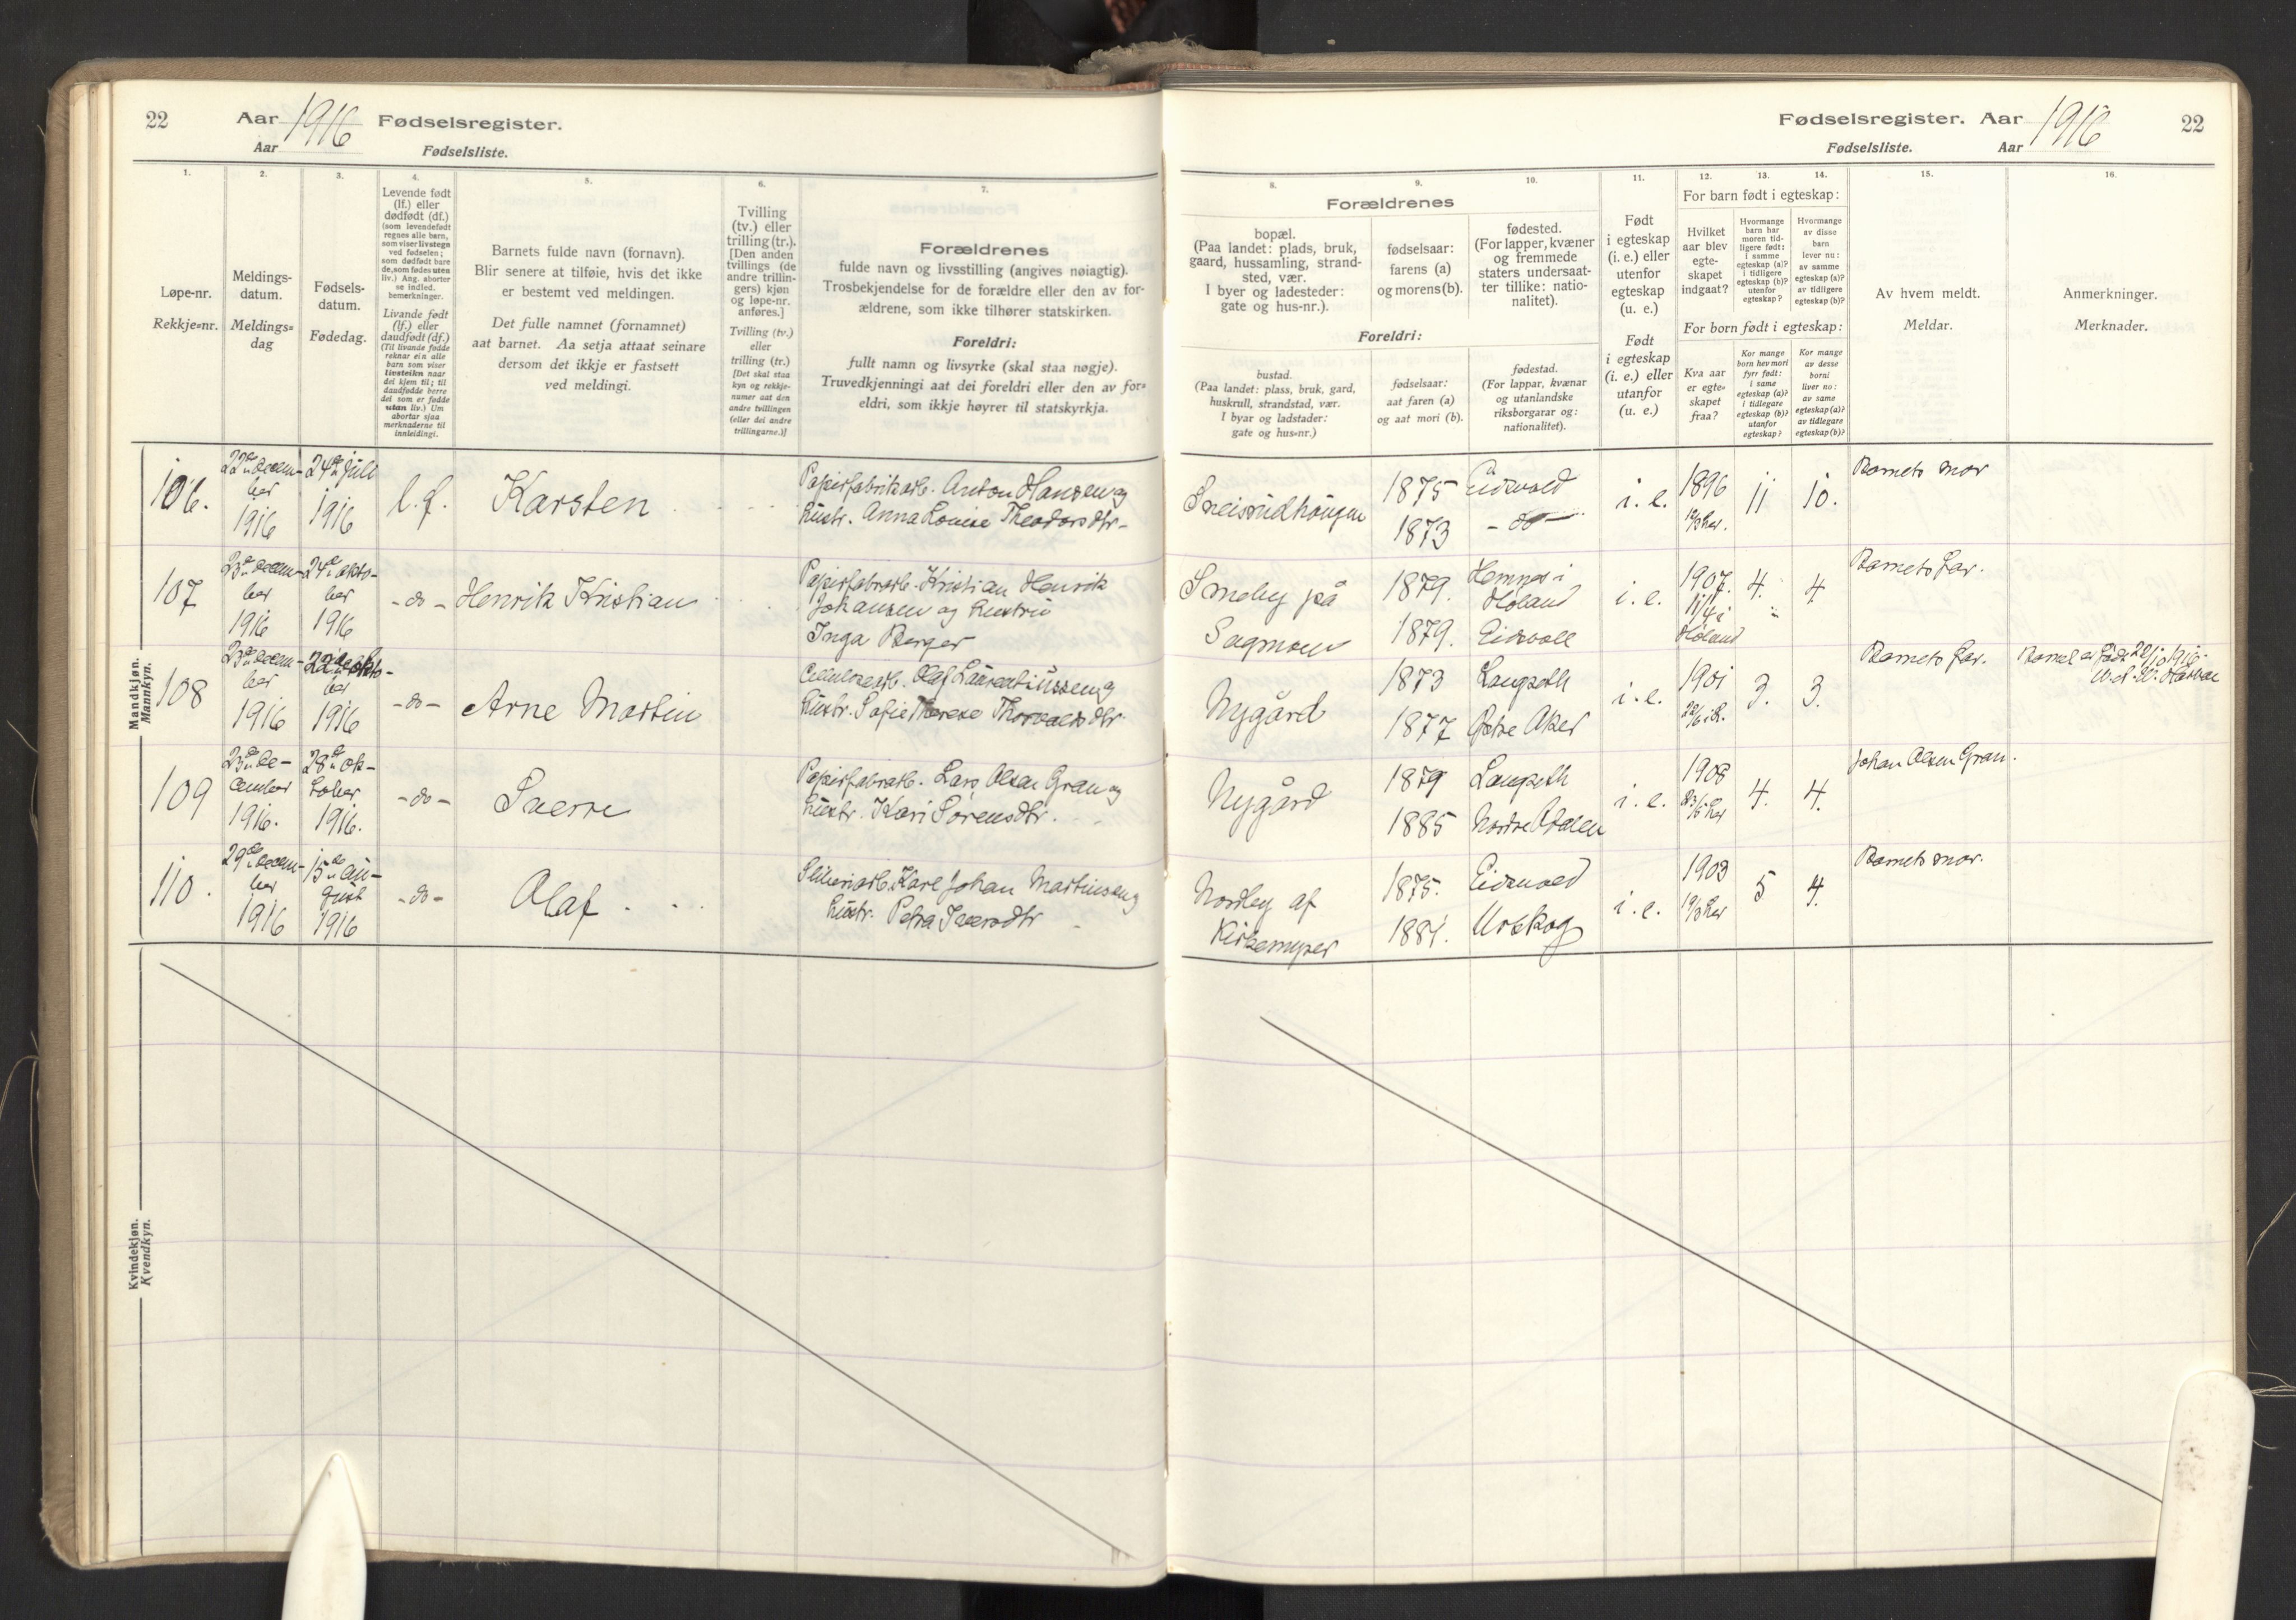 22
Aar 1916 Fødselsregister.
Aar
Fødselsliste.
1.
Løpe-nr.
Rekkje=nr.
2.
Meldings-
datum.
Meldings=
dag
3.
Fødsels-
datum.
Fødedag.
4.
Levende født
(lf.) eller
dødfødt (df.)
(som levendefødt
regnes alle barn,
som viser livstegn
ved fødselen;
som dødfødt bare
de, som fødes uten
liv.) Ang. aborter
se indled.
bemerkninger.
Livande født
(lf.) eller
daudfødt (df.)
(Til livande fødde
reknar ein alle
barn som viser
livsteikn naar
dei kjem til; til
daudfødde berre
dei som er fødde
utan liv.) Um
abortar sjaa
merknaderne til
innleidingi.
5.
Barnets fulde navn (fornavn).
Blir senere at tilføie, hvis det ikke
er bestemt ved meldingen.
Det fulle namnet (fornamnet)
aat barnet. Aa setja attaat seinare
dersom det ikkje er fastsett
ved meldingi.
6.
Tvilling
(tv.) eller
trilling (tr.).
[Den anden
tvillings (de
andre trillin-
gers) kjøn
og løpe-nr.
anføres.]
Tvilling (tv.)
eller
trilling (tr.)
[Det skal staa
kyn og rekkje-
numer aat den
andre tvillingen
(eller dei andre
trillingarne.)]
7.
Forældrenes
fulde navn og livsstilling (angives nøiagtig).
Trosbekjendelse for de forældre eller den av for-
ældrene, som ikke tilhører statskirken.
Foreldri:
fullt namn og livsyrke (skal staa nøgje).
Truvedkjenningi aat dei foreldri eller den av for=
eldri, som ikkje høyrer til statskyrkja.
Mandkjøn.
Mannkyn.
106.
22de decem-
ber
1916
24de juli
1916
l.f.
Karsten
Papirfabrikarb. Anton Hansen og
hustr. Anna Louise Theodorsdtr-
107
23de decem-
ber
1916
24de okto-
ber
1916
-do-
Henrik Kristian
Papirfabrarb. Kristian Henrik
Johansen og hustru
Inga Berger
108
23de decem-
ber
1916
22de okto-
ber
1916
-do-
Arne Martin
Cellulosearb. Olaf Laurentiussen og
hustr. Sofie Therese Thorvaldsdtr.
109
23de de-
cember
1916.
28de ok-
tober
1916.
-do-
Sverre
Papirfabrarb. Lars Olsen Gran og
hustr. Kari Sørensdtr.
110.
29de decem-
ber
1916
15de au-
gust
1916
-do-
Olaf
Sliperiarb. Karl Johan Martinsen og
hustr. Petra Iversdtr
Kvindekjøn.
Kvendkyn.
Fødselsregister. Aar 1916
22
Fødselsliste. Aar
8.
Forældrenes
bopæl.
(Paa landet: plads, bruk,
gaard, hussamling, strand-
sted, vær.
I byer og ladesteder:
gate og hus-nr.).
Foreldri:
bustad.
(Paa landet: plass, bruk, gard,
huskrull, strandstad, vær.
I byar og ladstader:
gate og hus=nr.)
9.
fødselsaar:
farens (a)
og morens (b).
fødselsaar:
aat faren (a)
og aat mori (b).
10.
fødested.
(For lapper, kvæner
og fremmede
staters undersaat-
ter tillike: natio-
nalitet).
fødestad.
(For lappar, kvænar
og utanlandske
riksborgarar og:
nationalitet).
11.
Født
i egteskap
(i. e.) eller
utenfor
egteskap
(u. e.)
Født
i egteskap
(i. e.) eller
utanfor
(u. e.)
12. 13. 14.
For barn født i egteskap:
Hvilket
aar blev
egte-
skapet
indgaat?
Hvormange
barn har
moren tid-
ligere født:
i samme
egteskap (a)?
i tidligere
egteskap (b)?
utenfor
egteskap?
Hvormange
av disse
barn
lever nu:
av samme
egteskap (a)?
av tidligere
egteskap (b)?
For born født i egteskap:
Kva aar
er egte=
skapet
fraa?
Kor mange
born hev mori
fyrr født:
i same
egteskap (a)?
i tidlegare
egteskap (b)?
utanfor
egteskap?
Kor mange
av desse
borni
liver no:
av same
egteskap (a)?
av tidlegare
egteskap (b)?
15.
Av hvem meldt.
Meldar.
16.
Anmerkninger.
Merknader.
1875
1873
Eidsvold
-do-
i. e.
1896
11
10.
Barnets mor
Smeby på
Sagmoen
1879.
1879.
Hemnes i
Høland
Eidsvoll
i. e.
1907.
11/4 i
Høland
4.
4.
Barnets far.
Nygård
1873
1877
Langseth
Østre Aker
i. e.
1901
3.
3.
Barnets far.
Barnet er født 22/10 1916.
Nygård
1879
1885
Langseth
Nordre Odalen
i. e.
1908
4.
4.
Johan Olsen Gran.
Nordby af
Kirkemyrer
1875.
1881.
Eidsvold
Urskog
i. e.
1903
5
4.
Barnets mor.